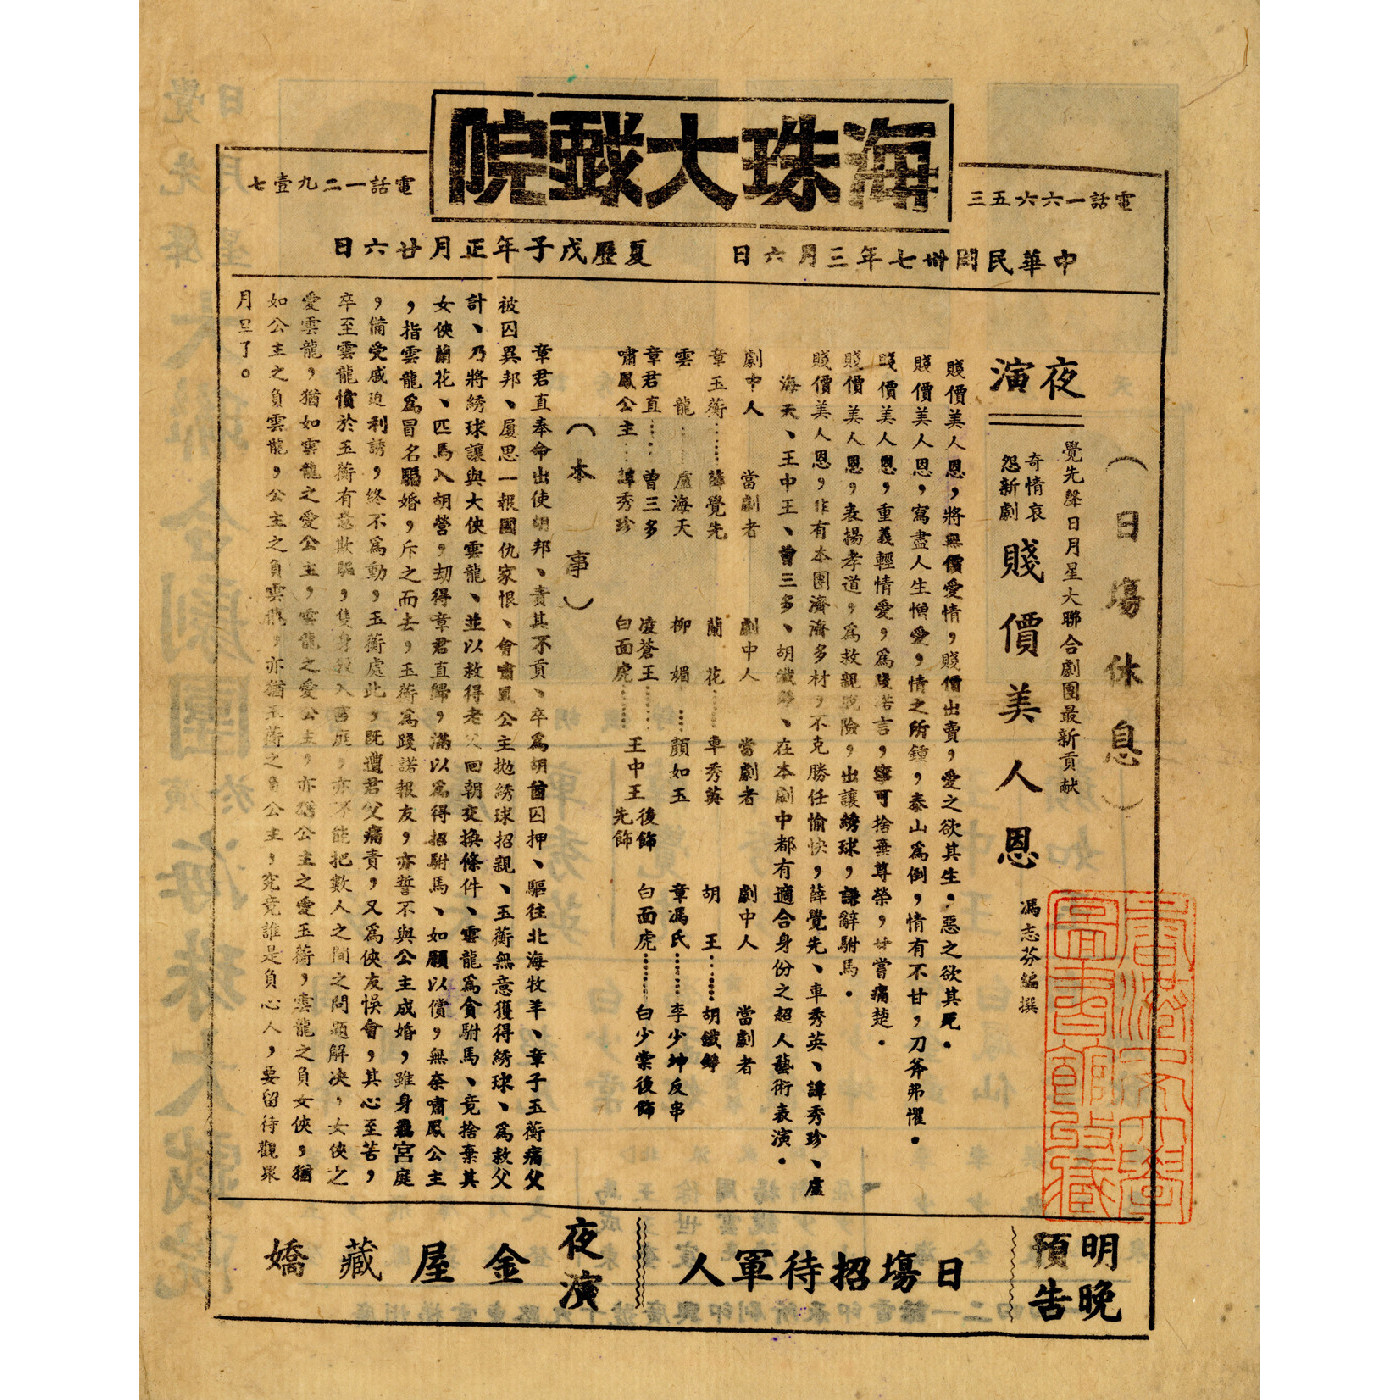 海珠大戲院
電話一六六五三
電話一二九壹七
中華民國卅七年三月六日
夏曆戊子年正月廿六日
（日場休息）
夜演
覺先聲日月星大聯合劇團最新貢献
奇情哀怨新劇
賤價美人恩
馮志芬編撰
賤價美人恩，將無價愛情，賤價出賣，愛之欲其生，惡之欲其死。
賤價美人恩，寫盡人生憎愛，情之所鍾，泰山為倒，情有不甘，刀斧弗懼。
賤價美人恩，重義輕情愛，為踐諾言，寧可捨棄尊榮，甘嘗痛楚。
賤價美人恩，表揚孝道，為救親脫險，出讓綉球，謙辭駙馬。
賤價美人恩，非有本團濟濟多材，不克勝任愉快，薛覺先、車秀英、譚秀珍、盧
海天、王中王、曾三多、胡鐵錚、在本劇中都有適合身份之超人藝術表演。
劇中人 當劇者 劇中人 當劇者 劇中人 當劇者
章玉蘅……薛覺先 蘭花……車秀英 胡王……胡鐵錚
雲龍……盧海天 柳媚……顏如玉 章馮氏……李少坤反串
章君直……曾三多 凌蒼王……王中王後飾 白面虎……白少棠後飾
嘯鳳公主……譚秀珍 白面虎……先飾
（本事）
章君直奉命出使胡邦、責其不貢、卒為胡酋囚押、驅往北海牧羊、章子玉蘅痛父
被囚異邦、屢思一報國仇家恨、會嘯鳳公主拋綉球招親、玉蘅無意獲得綉球、為救父
計、乃將綉球讓與大俠雲龍、並以救得老父回朝交換條件、雲龍為貪駙馬、竟捨棄其
女俠蘭花、匹馬入胡營，刼得章君直歸，滿以為得招駙馬、如願以償，無奈嘯鳳公主
，指雲龍為冒名騙婚，斥之而去，玉蘅為踐諾報友，亦誓不與公主成婚，雖身羈宮庭
，備受威迫利誘，終不為動，玉蘅處此，既遭君父痛責，又為俠友悞會，其心至苦，
卒至雲龍憤於玉蘅有意欺騙，隻身殺入宮庭，亦不能把數人之間之問題解决，女俠之
愛雲龍，猶如雲龍之愛公主，雲龍之愛公主，亦猶公主之愛玉蘅，雲龍之負女俠，猶
如公主之負雲龍，公主之負雲龍，亦猶玉蘅之負公主，究竟誰是負心人，要留待觀眾
月旦了。
明晚預告
日塲招待軍人
夜演
金屋藏嬌